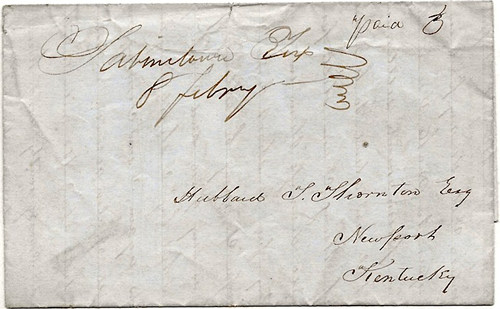 Sabinetown Tex paid 5
8 febry
Hubbard T. Thornton Esq
Newport
Kentucky